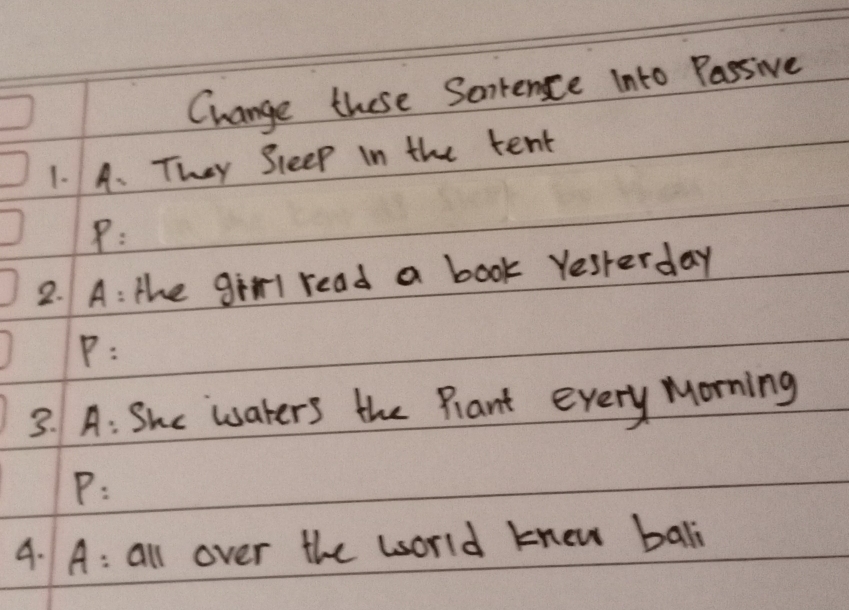 Change these Sentence Into Passive
1. A. They Sleep In the tent
P:
2. A: the girl read a book Yesterday
P:
3. A: She waters the Plant every Morning
P:
4. A: all over the world knew bali